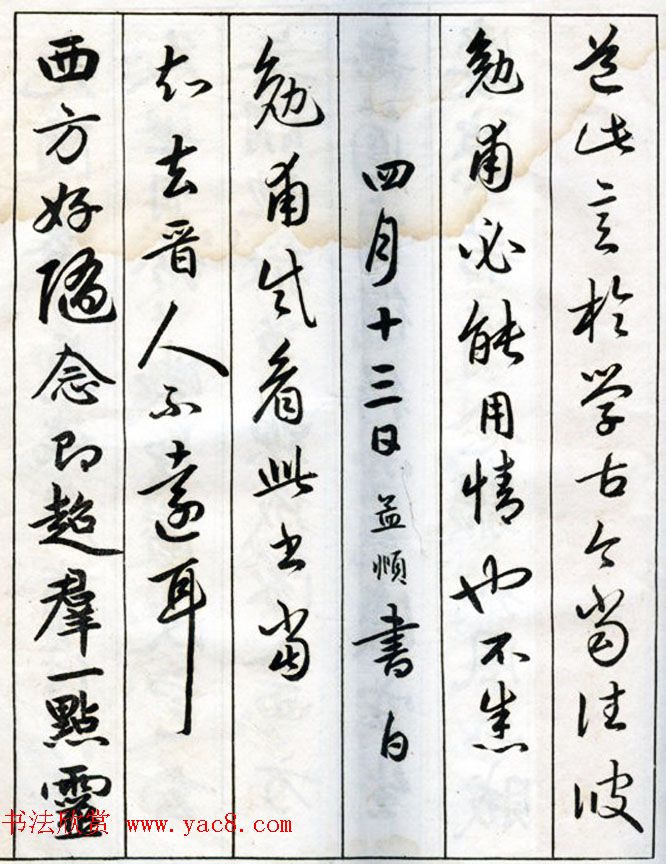 此言於学古今当往彼
勉甫必能用情也不
四月十三日益順書白
勉甫試看此书当
知去晋人不遠耳
西方好隨念即超羣一點靈
书法欣赏 www.yac8.com